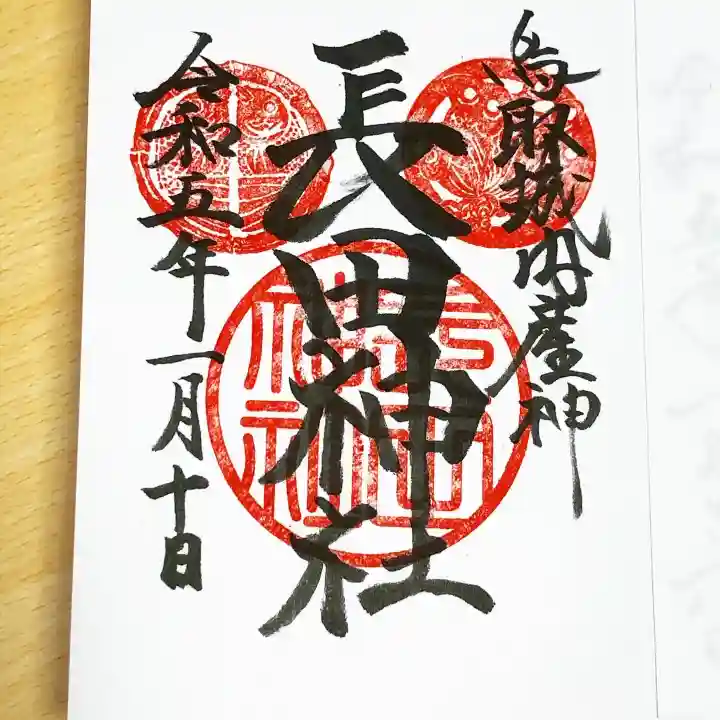 鳥取城内産神
長田神社
令和五年一月十日
長田
神社